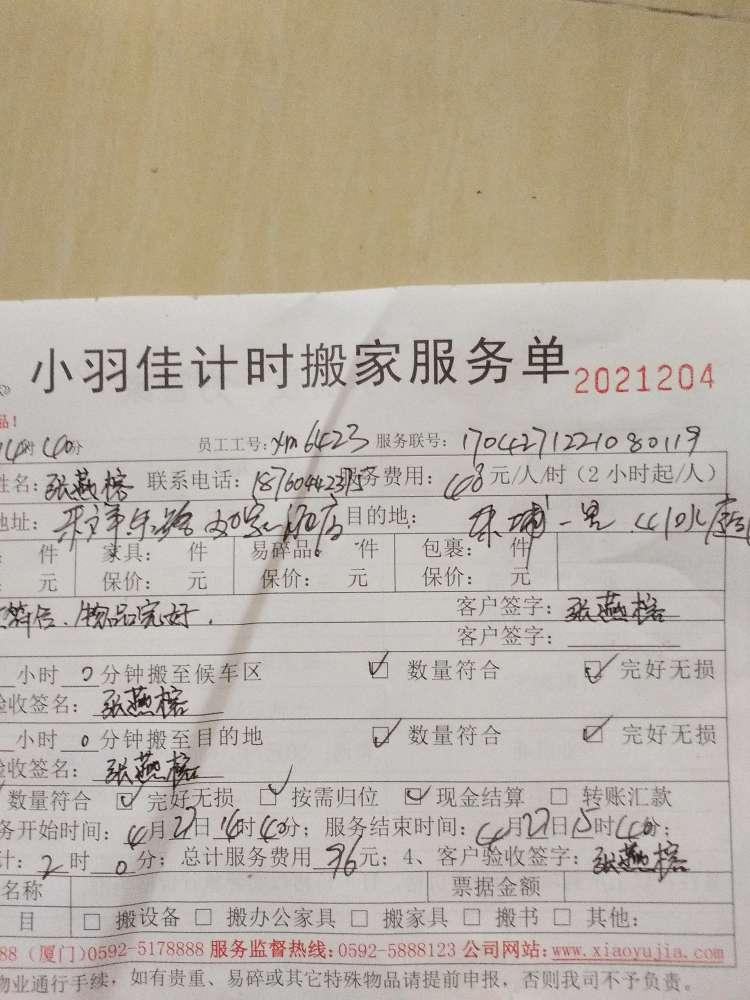 小羽佳计时搬家服务单 2021204
品!
时40分 员工工号:xm6423 服务联号:1704271221080119
姓名:张燕榕 联系电话:18760442375 服务费用:48元/人/时(2小时起/人)
地址: 酒店 目的地: 埔一里
件 家具: 件 易碎品: 件 包裹: 件
元 保价: 元 保价: 元 保价: 元
符合、物品完好. 客户签字:张燕榕
客户签字:
小时 0 分钟搬至候车区 ☑ 数量符合 ☑ 完好无损
验收签名:张燕榕
小时 0 分钟搬至目的地 ☑ 数量符合 ☑ 完好无损
验收签名:张燕榕
数量符合 ☑ 完好无损 ☑ 按需归位 ☑ 现金结算 □ 转账汇款
务开始时间:4月27日14时40分; 服务结束时间:4月27日15时40分;
计:2时0分; 总计服务费用 96元; 4、客户验收签字:张燕榕
名称 票据金额
目 □ 搬设备 □ 搬办公家具 □ 搬家具 □ 搬书 □ 其他:
88 (厦门)0592-5178888 服务监督热线:0592-5888123 公司网站:www.xiaoyujia.com
物业通行手续,如有贵重、易碎或其它特殊物品请提前申报,否则我司不予负责。